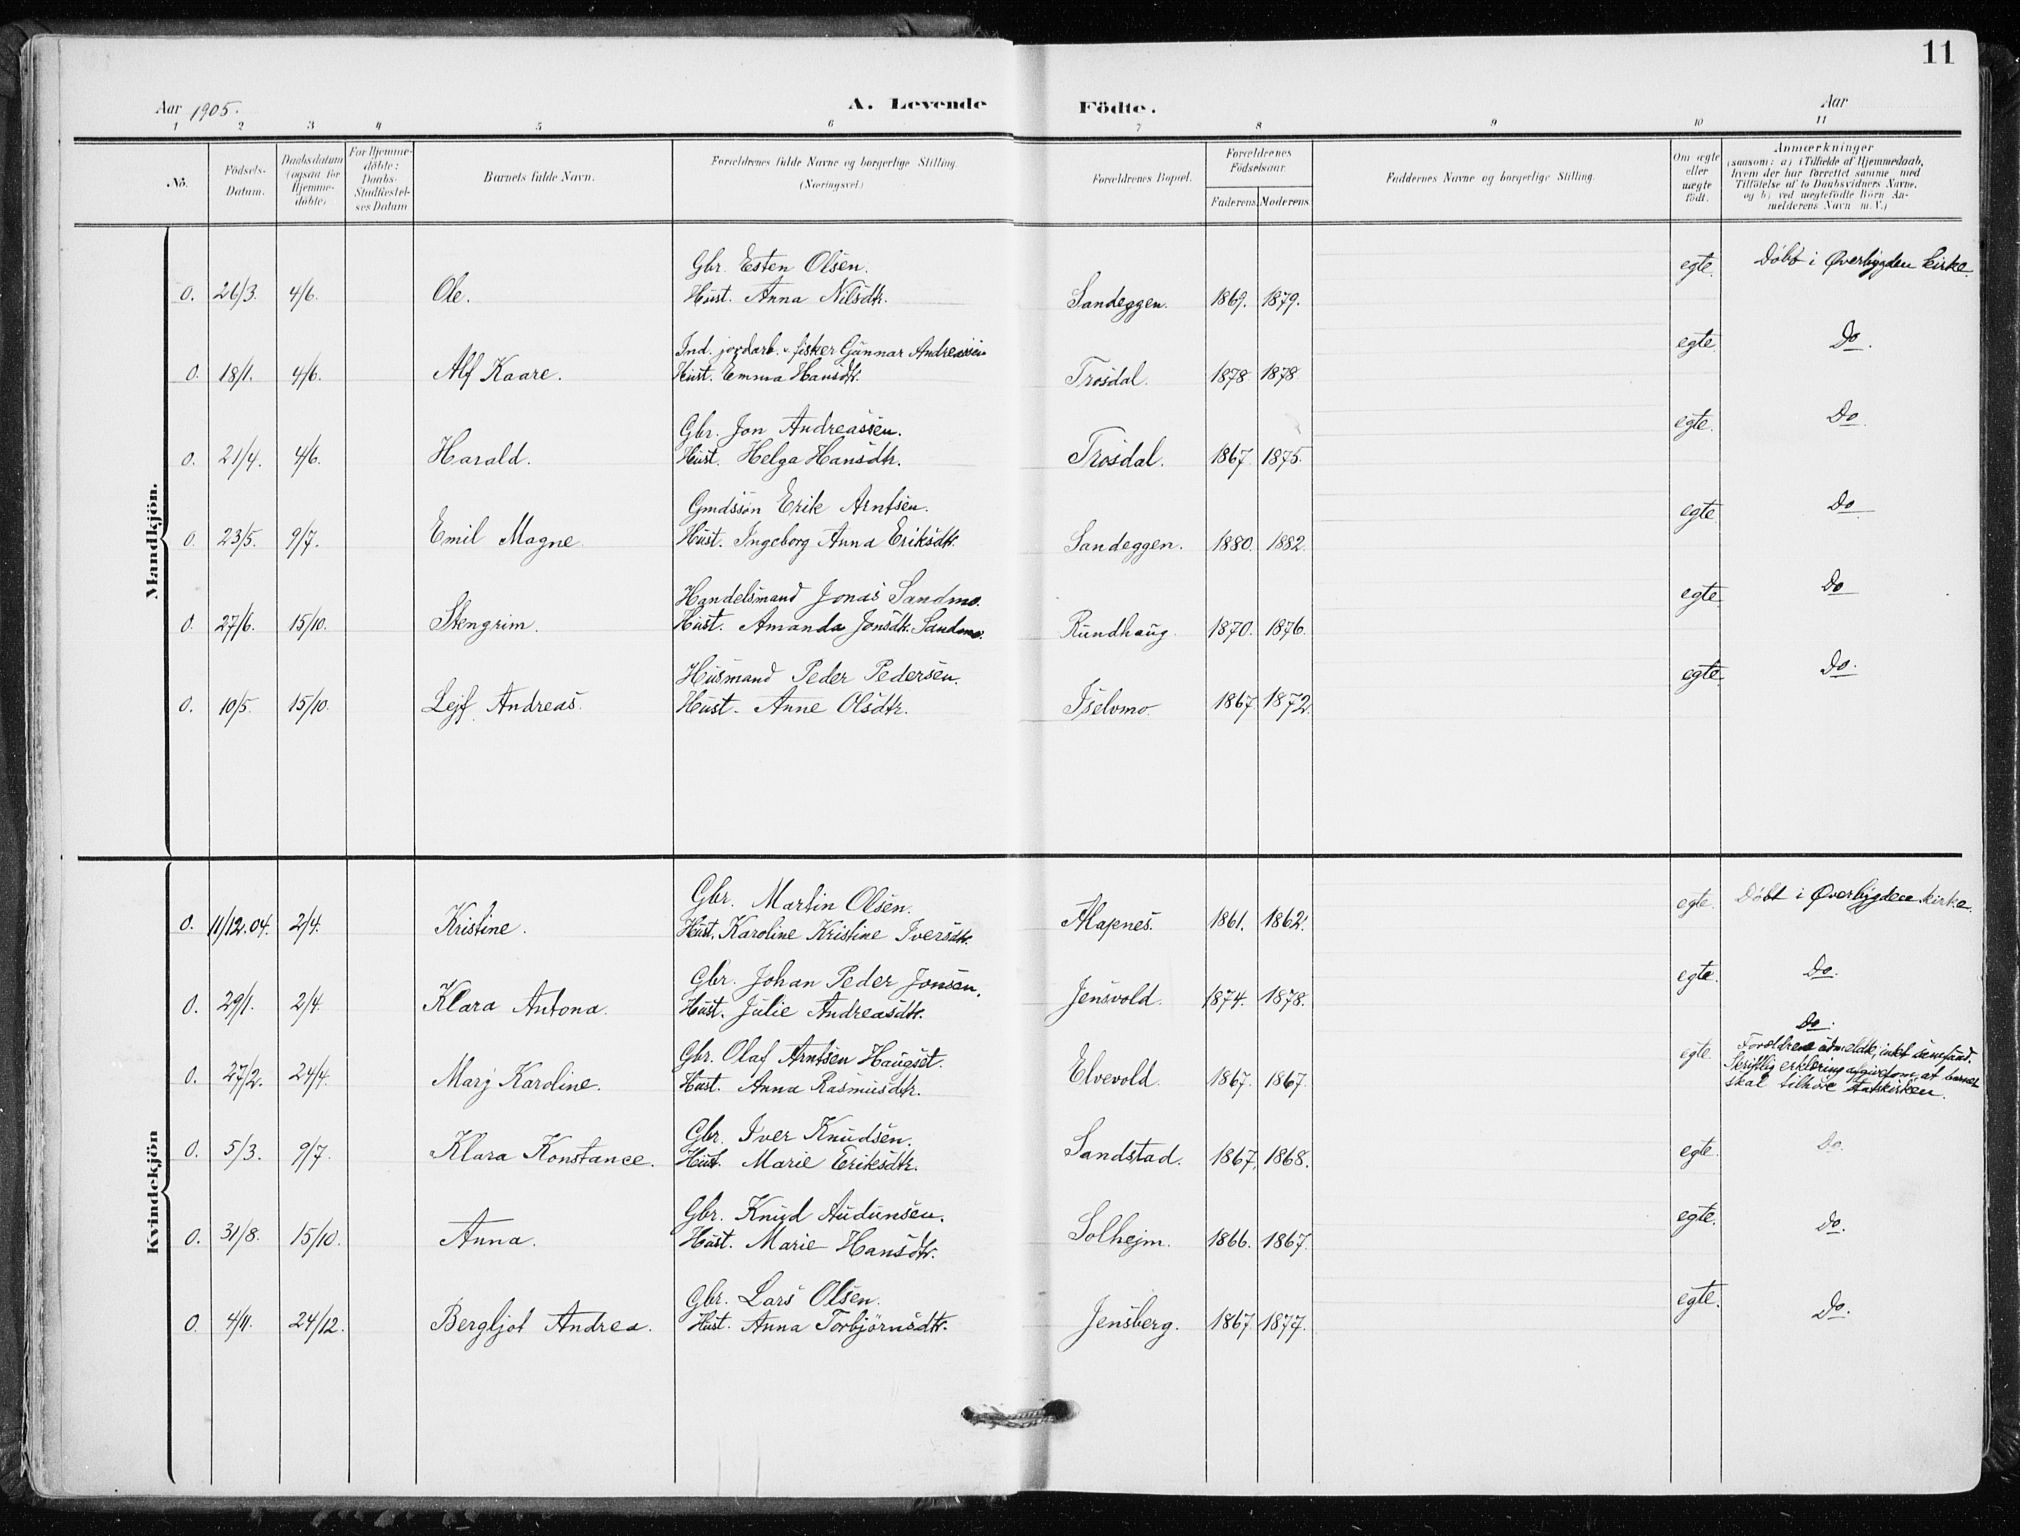 11
Aar 1905. A. Levende Födte. Aar
1 2 3 4 5 6 7 8 9 10 11
No. Födsels-Datum. Daabsdatum (ogsaa for Hjemme-döbte) For Hjemme-döbte: Daabs-Stadfæstel-ses Datum Barnets fulde Navn. Forældrenes fulde Navne og borgerlige Stilling. (Næringsvei) Forældrenes Bopæl. Forældrenes Födselsaar. Faderens Moderens Faddernes Navne og borgerlige Stilling. Om ægte eller uægte födt. Anmærkninger
(saasom: a) i Tilfælde af Hjemmedaab,
hvem der har forrettet samme med
Tilföielse af to Daabsvidners Navne,
og b) ved uægtefödte Börn An-
melderens Navn m.V.)
Mandkjön.
Gbr. Esten Olsen. egte. Döbt i Øverbygden kirke.
0. 26/3. 4/6. Ole. Hust. Anna Nilsdtr. Sandeggen. 1869. 1879.
Ind. jordarb. & fisker Gunnar Andreassen egte. Do.
0. 18/1. 4/6. Alf Kaare. Hust. Emma Hansdtr. Trosdal. 1878 1878
Gbr. Jon Andreassen. egte. Do
0. 21/4. 4/6. Harald. Hust. Helga Hansdtr. Trosdal. 1867. 1875.
Gmdssøn Erik Arntsen. egte Do
0. 23/5. 9/7. Emil Magne. Hust. Ingeborg Anna Eriksdtr. Sandeggen. 1880. 1882.
Handelsmand Jonas Sandmo. egte. Do
0. 27/6. 15/10. Stengrim. Hust. Amanda Jonsdtr. Sandmo. Rundhaug. 1870. 1876.
Husmand Peder Pedersen. egte. Do.
0. 10/5. 15/10. Lejf Andreas. Hust. Anne Olsdtr. Iselvmo. 1867 1872.
Kvindekjön
Gbr. Martin Olsen. egte. Döbt i Øverbygden kirke.
0. 11/12.04. 2/4. Kristine. Hust. Karoline Kristine Iversdtr. Alapnes. 1861. 1862.
Gbr. Johan Peder Jonsen. egte. Do.
0. 29/1. 2/4. Klara Antona. Hust. Julie Andreasdtr. Jensvold. 1874. 1878.
Do.
Gbr. Olaf Arntsen Haugset. egte. Forældrene udmeldte, intet samfund.
Skriftlig erklæring afgivet om at barnet
0. 27/2. 24/4. Marj Karoline. Hust. Anna Rasmusdtr. Elvevold. 1867. 1867. skal tilhøre statskirken.
Gbr. Iver Knudsen. egte. Do.
0. 5/3. 9/7. Klara Konstance. Hust. Marie Eriksdtr. Sandstad. 1867. 1868.
Gbr. Knud Audunsen. egte. Do.
0. 31/8. 15/10. Anna. Hust. Marie Hansdtr. Solhejm. 1866. 1867.
Gbr. Lars Olsen. egte. Do.
0. 4/11. 24/12. Bergljot Andrea. Hust. Anna Torbjørnsdtr. Jensberg. 1867. 1877.